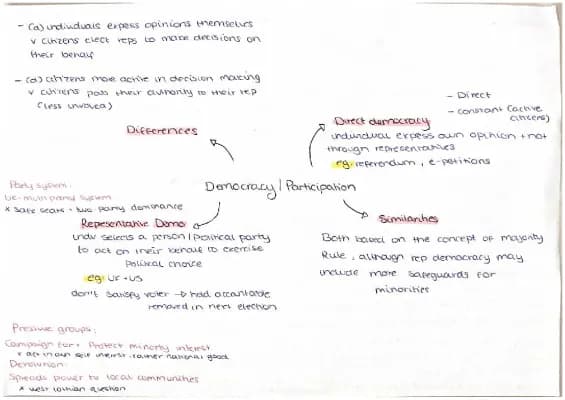 - (d) individuals express opinions themselves
v citizens elect reps to make decisions on
their behalf
- (d) citizens more active in decision making
v citizens pass their authority to their rep
(less involved)
Differences
- Direct
- constant (active
citizens)
Direct democracy
individual express own opinion + not
through representatives
eg: referendum, e-petitions
Democracy/Participation
Party system:
UK-multi party system
x safe seats - two party dominance
Representative Demo
indiv selects a person/political party
to act on their behalf to exercise
political choice
eg: UK + US
don't satisfy voter → held accountable
removed in next election
Similarities
Both based on the concept of majority
Rule, although rep democracy may
include more safeguards for
minorities
Pressure groups:
Campaign for + Protect minority interest
x act in own self interest rather national good
Devolution:
Spreads power to local communities
x west lothian question